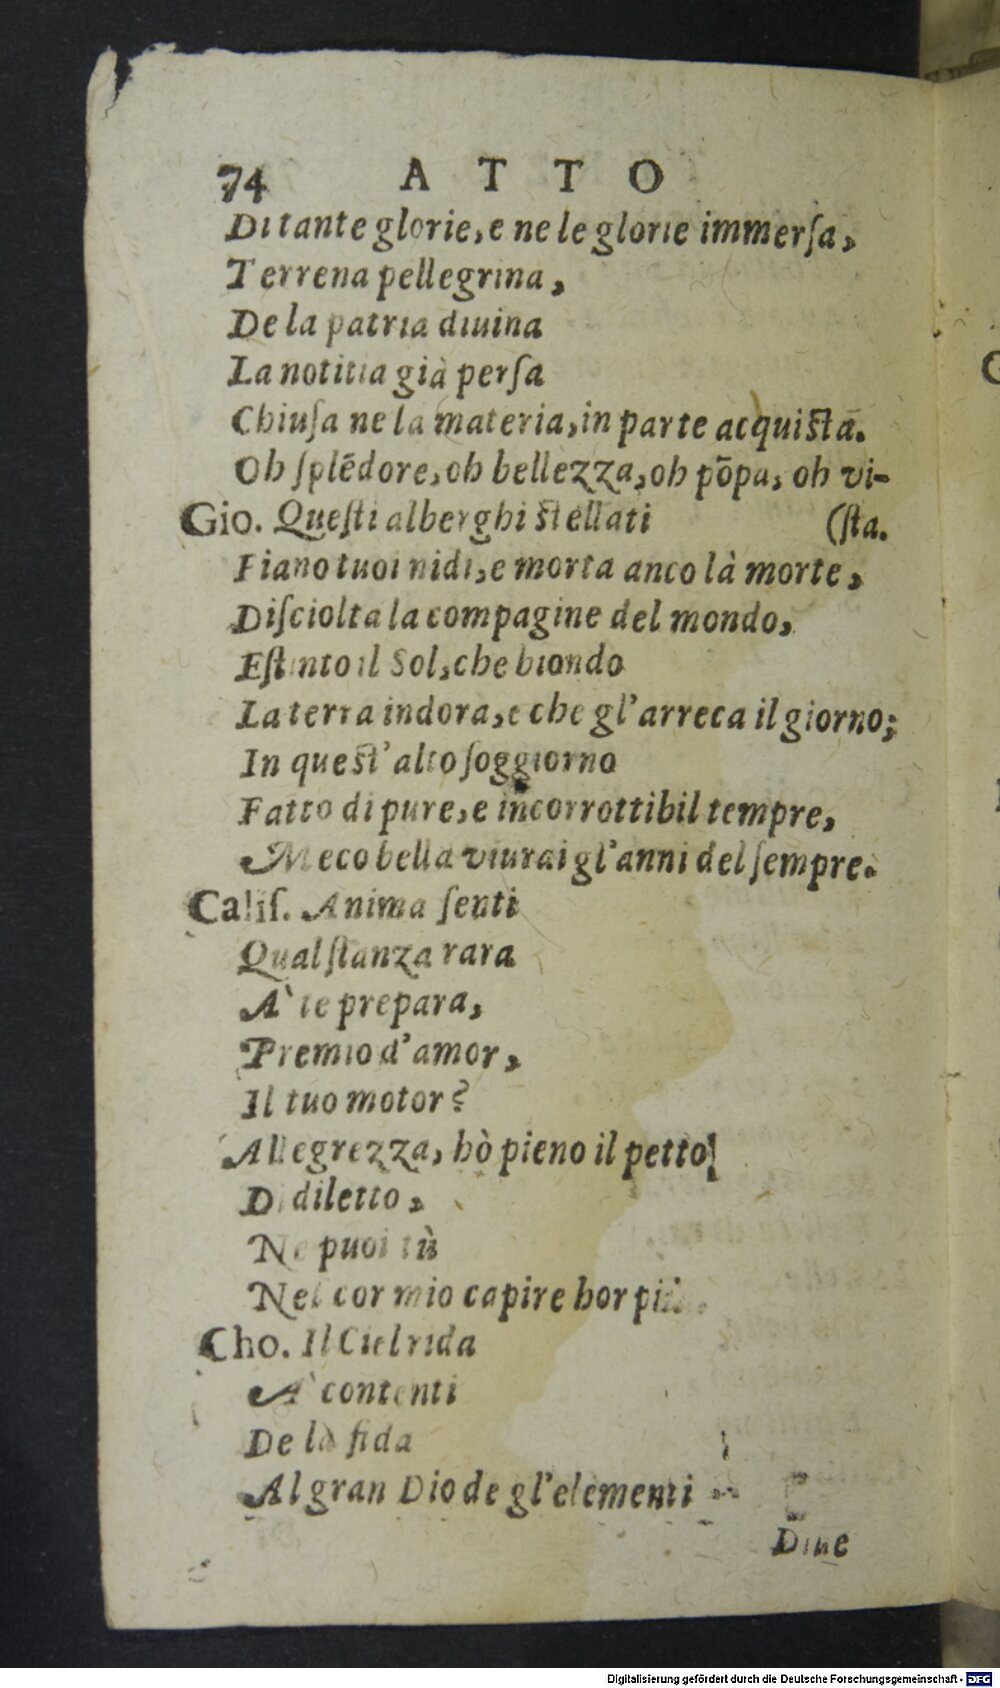 74 ATTO
Di tante glorie, e ne le glorie immerſa,
Terrena pellegrina,
De la patria diuina
La notitia già perſa
Chiuſa ne la materia, in parte acquiſta.
Oh ſplẽdore, oh bellezza, oh põpa, oh vi-
Gio. Queſti alberghi ſtellati (ſta.
Fiano tuoi nidi, e morta anco là morte,
Diſciolta la compagine del mondo,
Eſtinto il Sol, che biondo
La terra indora, e che gl'arreca il giorno;
In queſt'alto ſoggiorno
Fatto di pure, e incorrottibil tempre,
Meco bella viurai gl'anni del ſempre.
Caliſ. Anima ſenti
Qual ſtanza rara
A` te prepara,
Premio d'amor,
Il tuo motor?
Allegrezza, hò pieno il petto
Di diletto,
Ne puoi tù
Nel cor mio capire hor più.
Cho. Il Ciel rida
A` contenti
De la fida
Al gran Dio de gl'elementi
Diue
Digitalisierung gefördert durch die Deutsche Forschungsgemeinschaft - DFG